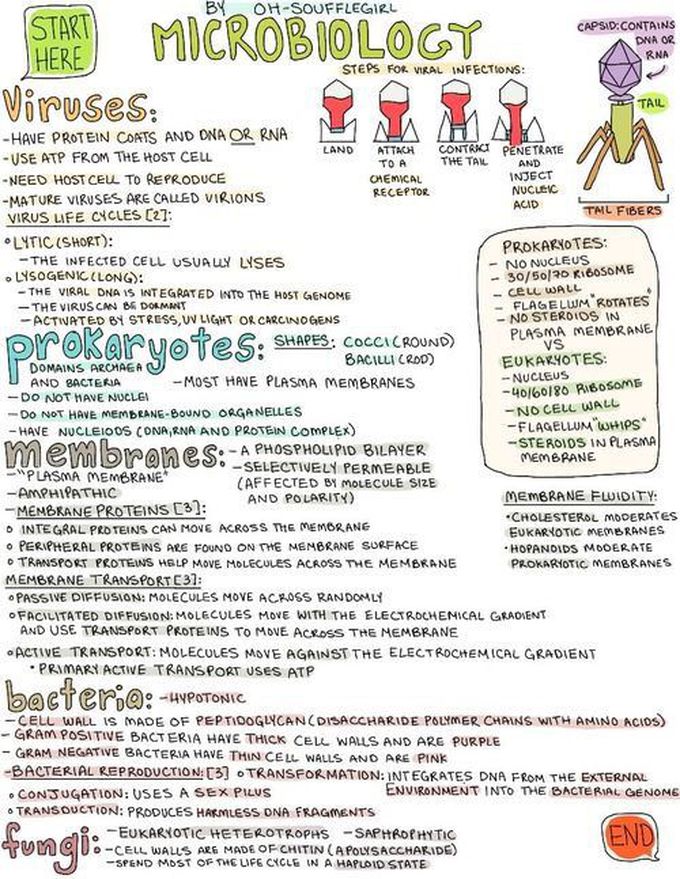 START
HERE
BY OH-SOUFFLEGIRL
MICROBIOLOGY
STEPS FOR VIRAL INFECTIONS:
LAND
ATTACH
TO A
CHEMICAL
RECEPTOR
CONTRACT
THE TAIL
PENETRATE
AND
INJECT
NUCLEIC
ACID
CAPSID: CONTAINS
DNA OR
RNA
TAIL
TAIL FIBERS
Viruses:
-HAVE PROTEIN COATS AND DNA OR RNA
-USE ATP FROM THE HOST CELL
-NEED HOST CELL TO REPRODUCE
-MATURE VIRUSES ARE CALLED VIRIONS
VIRUS LIFE CYCLES [2]:
• LYTIC (SHORT):
-THE INFECTED CELL USUALLY LYSES
• LYSOGENIC (LONG):
-THE VIRAL DNA IS INTEGRATED INTO THE HOST GENOME
-THE VIRUS CAN BE DORMANT
-ACTIVATED BY STRESS, UV LIGHT OR CARCINOGENS
PROKARYOTES:
- NO NUCLEUS
- 30/50/70 RIBOSOME
- CELL WALL
- FLAGELLUM "ROTATES"
- NO STEROIDS IN
PLASMA MEMBRANE
VS
EUKARYOTES:
-NUCLEUS
-40/60/80 RIBOSOME
-NO CELL WALL
-FLAGELLUM "WHIPS"
-STEROIDS IN PLASMA
MEMBRANE
prokaryotes:
SHAPES: COCCI (ROUND)
BACILLI (ROD)
DOMAINS ARCHAEA
AND BACTERIA
-MOST HAVE PLASMA MEMBRANES
-DO NOT HAVE NUCLEI
-DO NOT HAVE MEMBRANE-BOUND ORGANELLES
-HAVE NUCLEIODS (DNA, RNA AND PROTEIN COMPLEX)
membranes:
-A PHOSPHOLIPID BILAYER
-SELECTIVELY PERMEABLE
(AFFECTED BY MOLECULE SIZE
AND POLARITY)
-"PLASMA MEMBRANE"
-AMPHIPATHIC
-MEMBRANE PROTEINS [3]:
• INTEGRAL PROTEINS CAN MOVE ACROSS THE MEMBRANE
• PERIPHERAL PROTEINS ARE FOUND ON THE MEMBRANE SURFACE
• TRANSPORT PROTEINS HELP MOVE MOLECULES ACROSS THE MEMBRANE
MEMBRANE FLUIDITY:
•CHOLESTEROL MODERATES
EUKARYOTIC MEMBRANES
•HOPANOIDS MODERATE
PROKARYOTIC MEMBRANES
MEMBRANE TRANSPORT [3]:
•PASSIVE DIFFUSION: MOLECULES MOVE ACROSS RANDOMLY
•FACILITATED DIFFUSION: MOLECULES MOVE WITH THE ELECTROCHEMICAL GRADIENT
AND USE TRANSPORT PROTEINS TO MOVE ACROSS THE MEMBRANE
•ACTIVE TRANSPORT: MOLECULES MOVE AGAINST THE ELECTROCHEMICAL GRADIENT
• PRIMARY ACTIVE TRANSPORT USES ATP
bacteria:
-HYPOTONIC
-CELL WALL IS MADE OF PEPTIDOGLYCAN (DISACCHARIDE POLYMER CHAINS WITH AMINO ACIDS)
- GRAM POSITIVE BACTERIA HAVE THICK CELL WALLS AND ARE PURPLE
- GRAM NEGATIVE BACTERIA HAVE THIN CELL WALLS AND ARE PINK
-BACTERIAL REPRODUCTION: [3] • TRANSFORMATION: INTEGRATES DNA FROM THE EXTERNAL
ENVIRONMENT INTO THE BACTERIAL GENOME
• CONJUGATION: USES A SEX PILUS
• TRANSDUCTION: PRODUCES HARMLESS DNA FRAGMENTS
fungi:
-EUKARYOTIC HETEROTROPHS -SAPHROPHYTIC
-CELL WALLS ARE MADE OF CHITIN (A POLYSACCHARIDE)
-SPEND MOST OF THE LIFE CYCLE IN A HAPLOID STATE
END